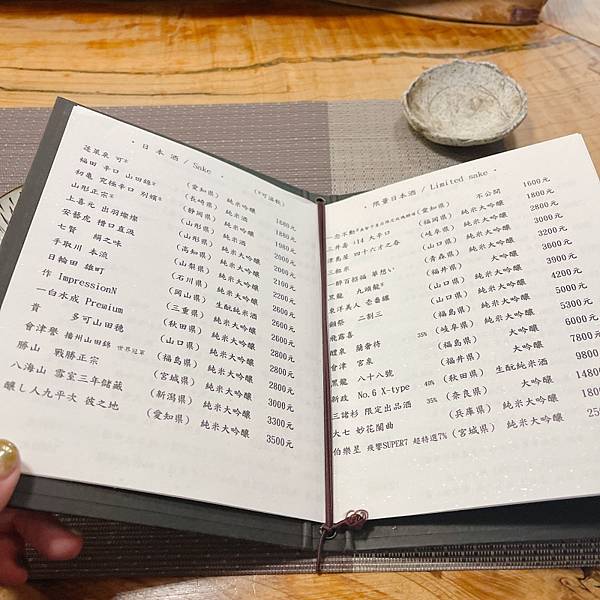 · 日本酒 / Sake ·
(*可溫飲)
蓬萊泉 可* (愛知県) 純米吟釀 1680元
福田 辛口 山田錦* (長崎県) 純米酒 1880元
初亀 究極辛口 別嬪* (静岡県) 純米吟釀 1880元
山形正宗* (山形県) 純米酒 1980元
上喜元 出羽燦燦 (山形県) 純米吟釀 2000元
安藝虎 槽口直汲 (高知県) 純米吟釀 2060元
七賢 絹之味 (山梨県) 純米大吟釀 2100元
手取川 本流 (石川県) 純米大吟釀 2190元
日輪田 雄町 (岡山県) 生酛純米酒
作 ImpressionN (三重県) 純米大吟釀
一白水成 Premium (秋田県) 純米大吟釀
貴 多可山田穂 (山口県) 純米大吟釀 2800元
會津譽 播州山田錦 世界冠軍 (福島県) 純米大吟釀 2800元
勝山 戰勝正宗 (宮城県) 純米大吟釀 3000元
八海山 雪室三年儲蔵 (新潟県) 純米大吟釀 3300元
釀し人九平次 彼之地 (愛知県) 純米大吟釀 3500元
· 限量日本酒 / Limited sake ·
一念不動 (愛知県) 不公開 1600元
三井寿 +14 大辛口 (福岡県) 純米吟釀 1800元
津島屋 四十六才之春 (岐阜県) 純米大吟釀 2800元
三粗米 (山口県) 純米大吟釀
一醉百招福 華想い (青森県) 純米大吟釀 3600元
黑龍 九頭龍* (福井県) 大吟釀 3900元
東洋美人 壱番纏 (山口県) 純米大吟釀 4200元
獺祭 二割三 (山口県) 純米大吟釀 5000元
飛露喜 (福島県) 純米大吟釀 5300元
醴泉 蘭奢待 35% (岐阜県) 純米大吟釀 6000元
會津 宮泉 (福島県) 大吟釀
黑龍 八十八號 (福井県) 大吟釀
新政 No.6 X-type 40% (秋田県) 生酛純米酒 9800
三諸杉 限定出品酒 35% (奈良県) 大吟釀
大七 妙花闌曲 (兵庫県) 純米大吟釀
伯樂星 殘響SUPER7 超特選7% (宮城県) 純米大吟釀